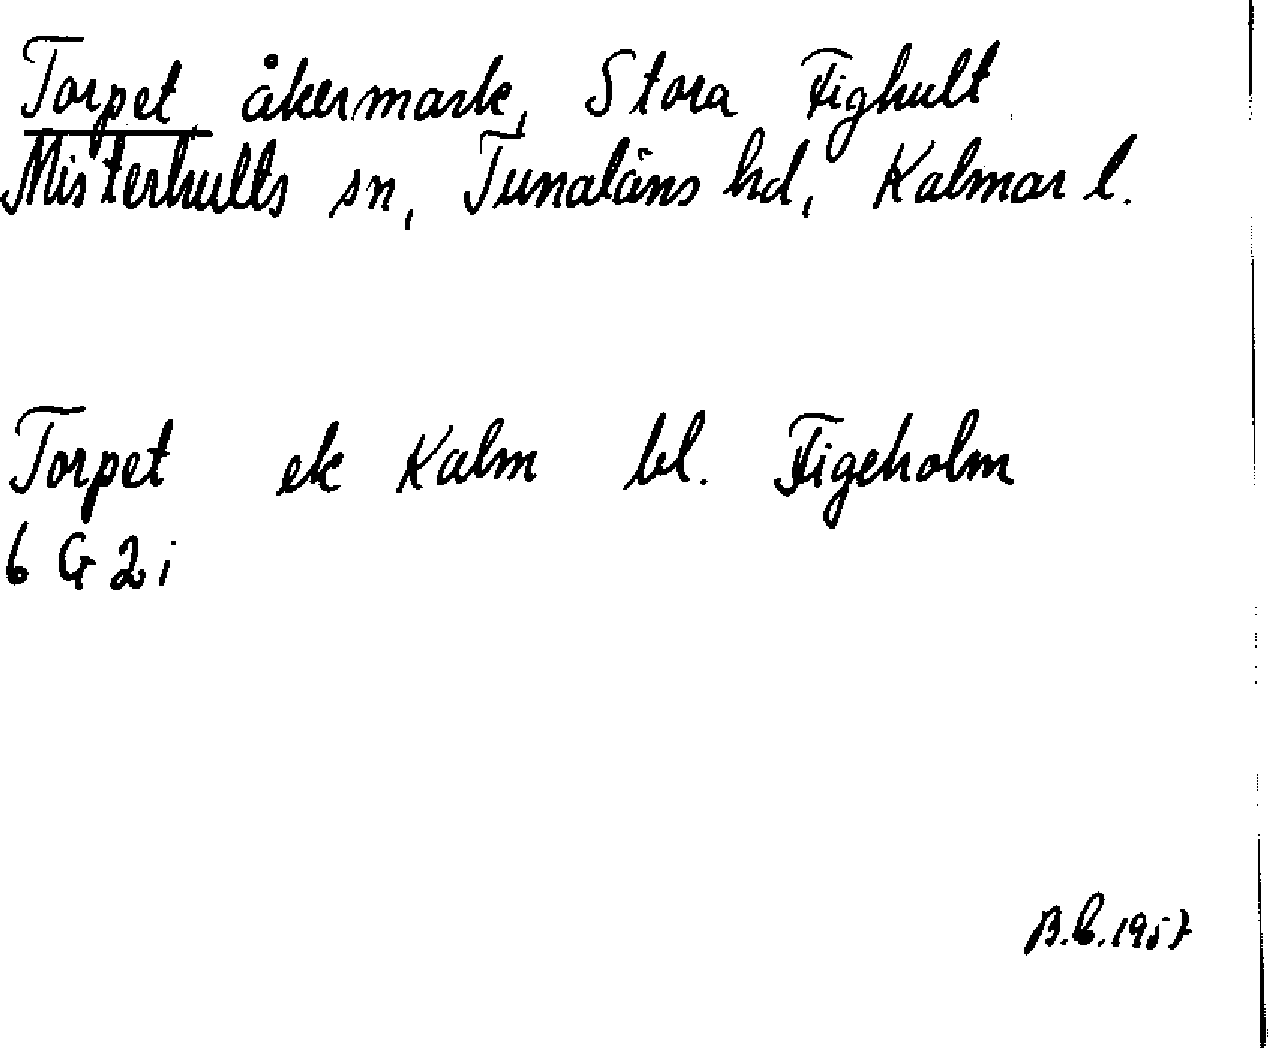 Torpet åkermark, Stora Fighult
Misterhults sn, Tunaläns hd, Kalmar l.
Torpet ek Kalm bl. Figeholm
6 G 2 i
B.C.1957